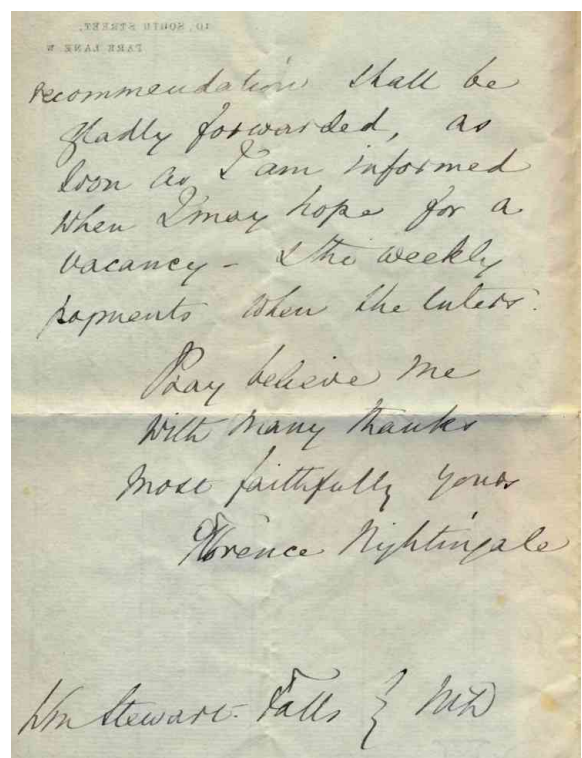 10, SOUTH STREET,
PARK LANE W
recommendation shall be
gladly forwarded, as
soon as I am informed
when I may hope for a
vacancy - & the weekly
payments when she enters.
Pray believe me
with many thanks
most faithfully yours
Florence Nightingale
Wm Stewart Falls } MD